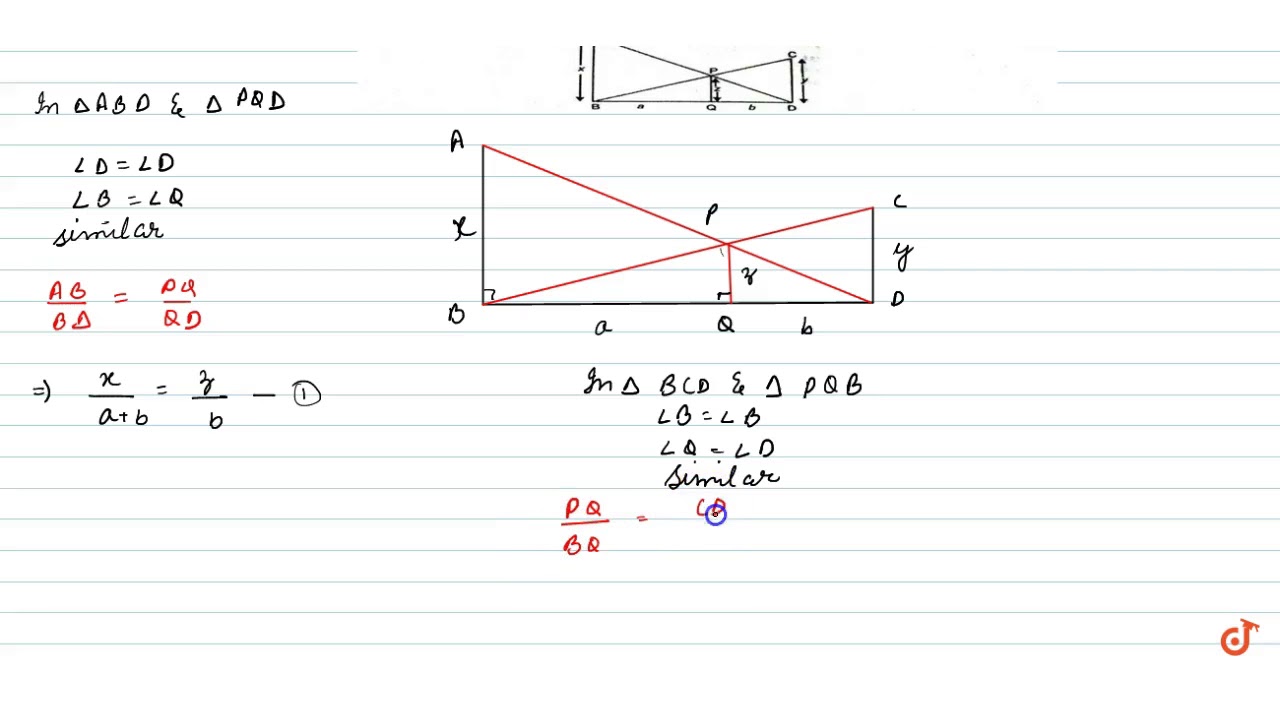 In △ABD & △PQD
∠D = ∠D
∠B = ∠Q
similar
AB/BD = PQ/QD
⇒) x/(a+b) = z/b — ①
x
P
C
B
a
Q
b
D
A
P
C
x
z
y
B
a
Q
b
D
In △ BCD & △ PQB
∠B = ∠B
∠Q = ∠D
Similar
PQ/BQ = CD